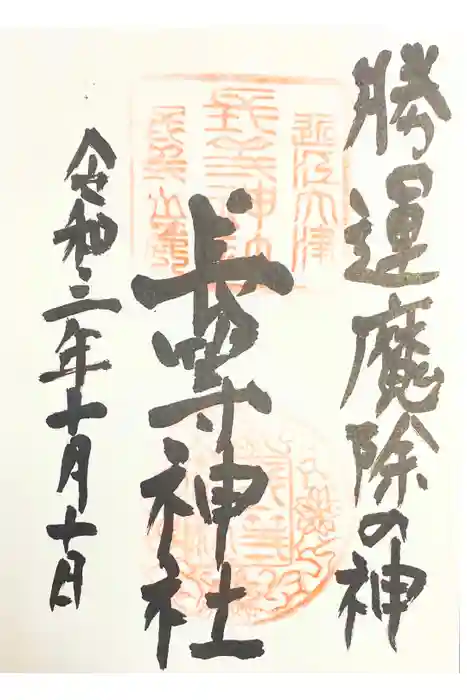 勝運魔除の神
近江大津
長等神社
長等神社
令和三年十月十日